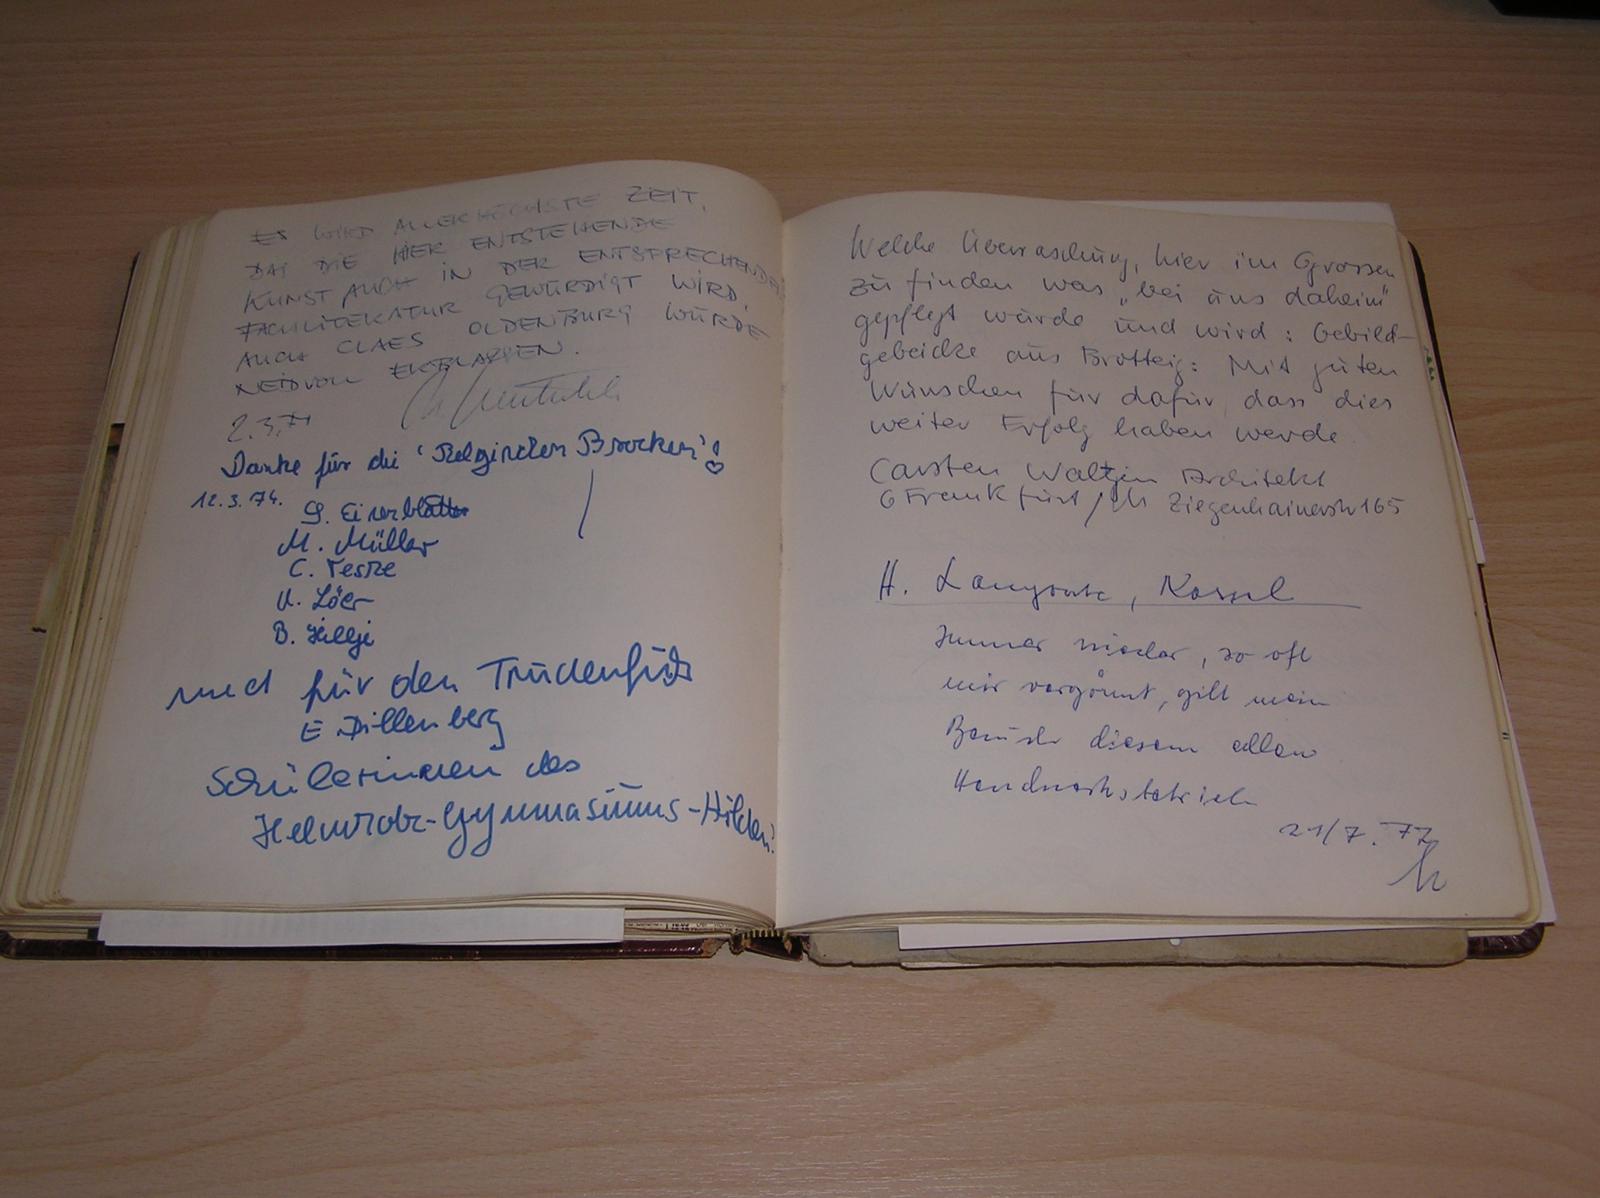 ES WIRD ALLERHÖCHSTE ZEIT,
DAß DIE HIER ENTSTEHENDE
KUNST AUCH IN DER ENTSPRECHENDEN
FACHLITERATUR GEWÜRDIGT WIRD.
AUCH CLAES OLDENBURG WÜRDE
NEIDVOLL ERBLASSEN.
2.3.74
Danke für die 'Belgischen Brocken'!
12.3.74.
M. Müller
C. Teske
U. Löer
B. Hillje
und für den Trudenfuß
E Dillenberg
Schülerinnen des
Helmholtz-Gymnasiums-Hilden!
Welche Überraschung, hier im Grossen
zu finden was „bei uns daheim"
gepflegt wurde und wird: Gebild-
gebäcke aus Brotteig: Mit guten
Wünschen für dafür, dass dies
weiter Erfolg haben werde
Carsten Architekt
6 Frankfurt/M Ziegenhainerstr 165
H. Kassel
Immer wieder, so oft
mir vergönnt, gilt mein
Besuch diesem edlen
Handwerksbetrieb
21/7. 77